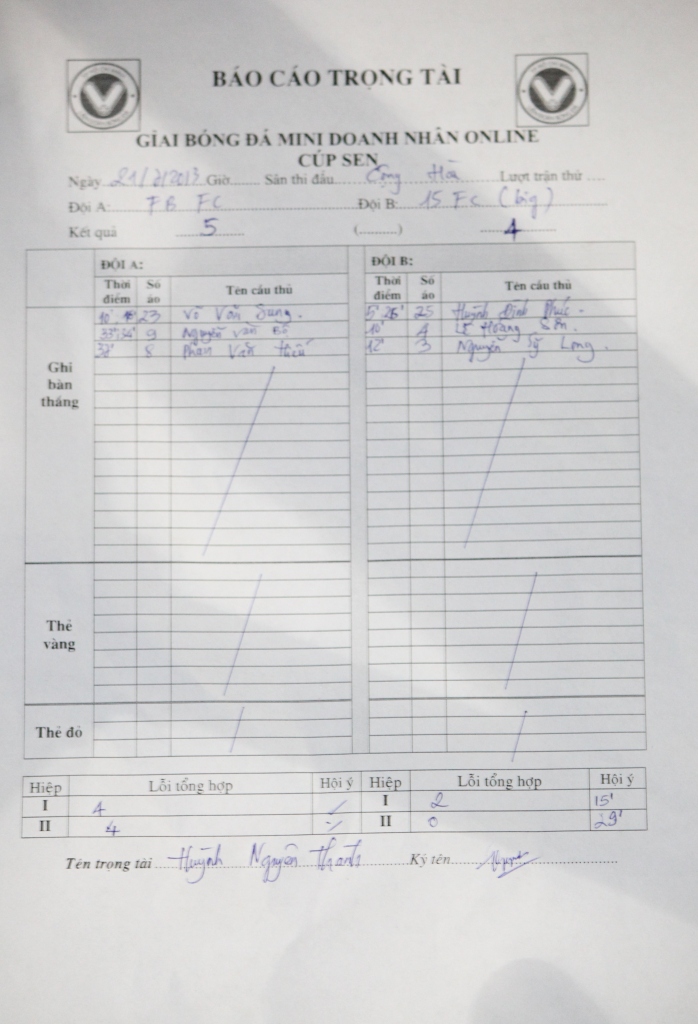 BÁO CÁO TRỌNG TÀI
GIẢI BÓNG ĐÁ MINI DOANH NHÂN ONLINE
CÚP SEN
Ngày 21/7/2013 Giờ........ Sân thi đấu Cộng Hòa Lượt trận thứ ....
Đội A: FB FC Đội B: 15 FC (big)
Kết quả 5 (..........) 4
ĐỘI A: ĐỘI B:
Thời điểm Số áo Tên cầu thủ Thời điểm Số áo Tên cầu thủ
Ghi bàn thắng
10' 23 Võ Văn Dung. 5' 25 Huỳnh Đình Phúc.
9 Nguyễn Văn 10' 4 Lê Hoàng
8 Phan Văn 12' 3 Nguyễn Sỹ Long.
Thẻ vàng
Thẻ đỏ
Hiệp Lỗi tổng hợp Hội ý Hiệp Lỗi tổng hợp Hội ý
I 4 I 2 15'
II 4 II 0 29'
Tên trọng tài Huỳnh Nguyên Thanh Ký tên